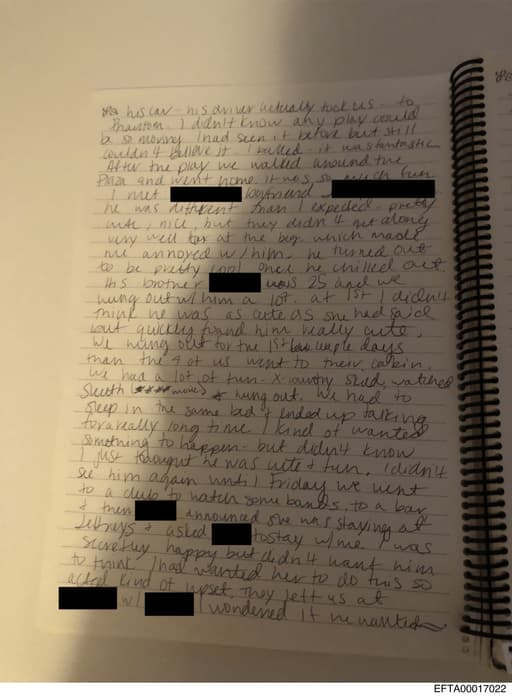 his car - his driver actually took us - to
Phantom. I didn't know any play could
be so moving I had seen it before but still
couldn't believe it I balled - it was fantastic
After the play we walked around the
Plaza and went home. it was so much fun
I met boyfriend
he was different than I expected. pretty
cute, nice, but they didn't get along
very well far at the beg. which made
me annoyed w/him. he turned out
to be pretty cool once he chilled out
His brother was 25 and we
hung out w/ him a lot. at 1st I didn't
think he was as cute as she had said
but quickly found him really cute.
We hung out for the 1st couple days
than the 4 of us went to their cabin.
we had a lot of fun - x-country skied, watched
Sleuth movie) hung out. We had to
sleep in the same bed & ended up talking
for a really long time I kind of wanted
something to happen - but didn't know
I just thought he was cute & fun. I didn't
see him again until Friday we went
to a club to watch some bands, to a bar
& then announced she was staying at
Jefreys & asked to stay w/me I was
secretly happy but didn't want him
to think I had wanted her to do this so
acted kind of upset. They left us at
w/ I wondered if he wanted
EFTA00017022